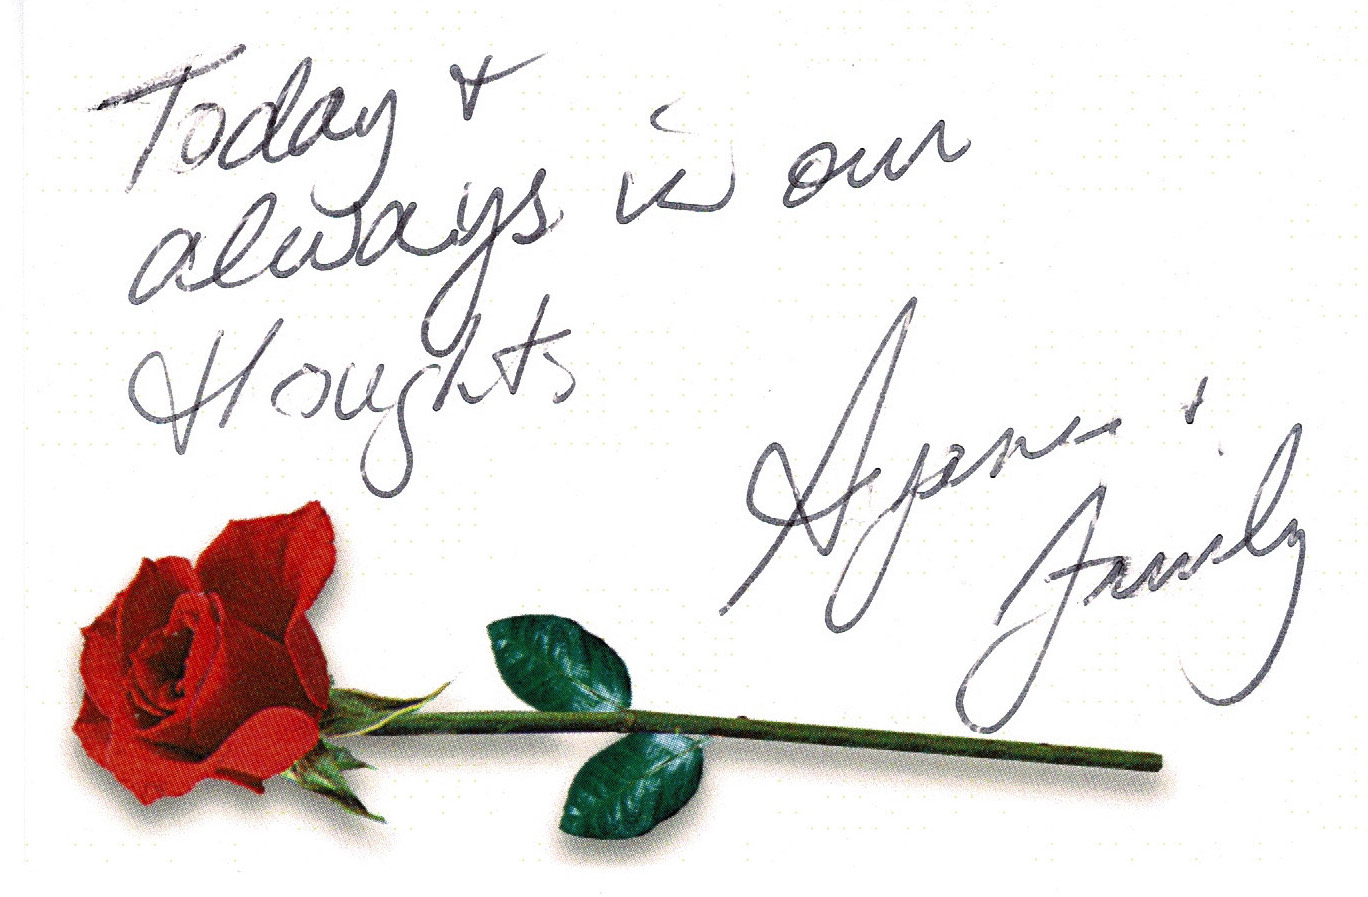 Today +
always in our
thoughts
+
family